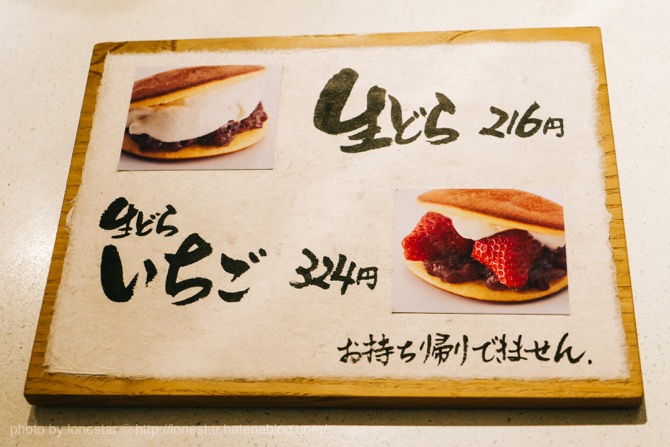 生どら 216円
生どら
いちご 324円
お持ち帰りできません.
photo by lonestar © http://lonestar.hatenablog.com/